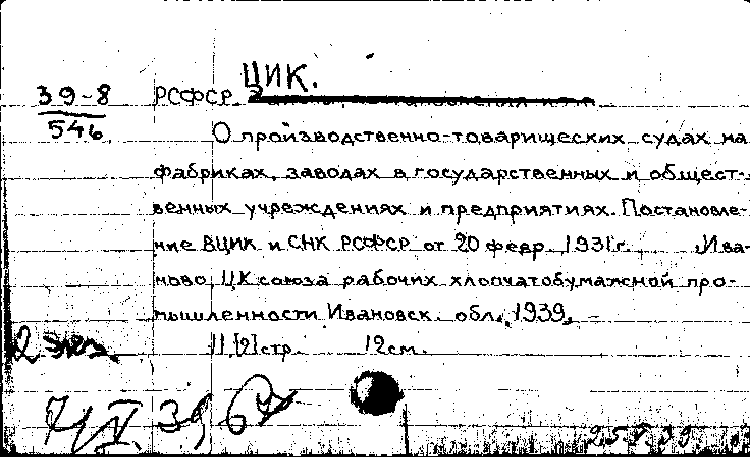 ЦИК.
39-8
546
РСФСР.
О производственно-товарищеских судах на
фабриках, заводах в государственных и общест-
венных учреждениях и предприятиях. Постановле-
ние ВЦИК и СНК РСФСР от 20 февр. 1931 г. Ива-
ново, ЦК союза рабочих хлопчатобумажной про-
мышленности Ивановск. обл., 1939,
11,[2] стр. 12 см.
2 экз.